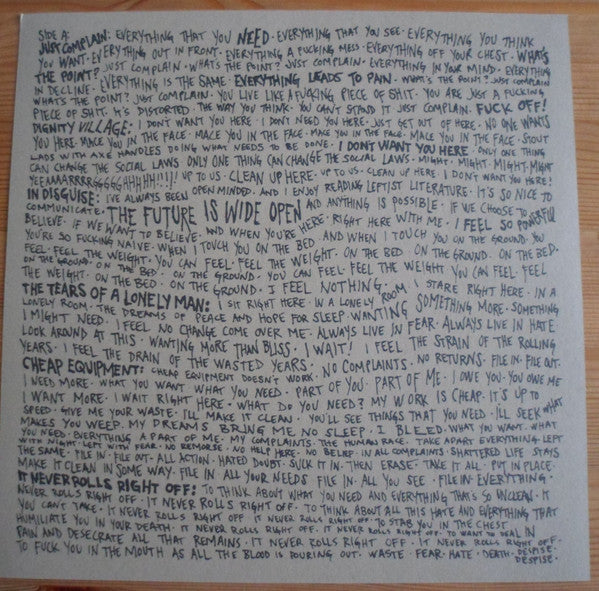 SIDE A:
JUST COMPLAIN: EVERYTHING THAT YOU NEED · EVERYTHING THAT YOU SEE · EVERYTHING YOU THINK
YOU WANT · EVERYTHING OUT IN FRONT · EVERYTHING A FUCKING MESS · EVERYTHING OFF YOUR CHEST · WHAT'S
THE POINT? JUST COMPLAIN · WHAT'S THE POINT? JUST COMPLAIN · EVERYTHING IN YOUR MIND · EVERYTHING
IN DECLINE · EVERYTHING IS THE SAME · EVERYTHING LEADS TO PAIN · WHAT'S THE POINT? JUST COMPLAIN
WHAT'S THE POINT? JUST COMPLAIN · YOU LIVE LIKE A FUCKING PIECE OF SHIT · YOU ARE JUST A FUCKING
PIECE OF SHIT. IT'S DISTORTED · THE WAY YOU THINK · YOU CAN'T STAND IT JUST COMPLAIN. FUCK OFF!
DIGNITY VILLAGE: I DON'T WANT YOU HERE · I DON'T NEED YOU HERE · JUST GET OUT OF HERE · NO ONE WANTS
YOU HERE · MACE YOU IN THE FACE · MACE YOU IN THE FACE · MACE YOU IN THE FACE · MACE YOU IN THE FACE · STOUT
LADS WITH AXE HANDLES DOING WHAT NEEDS TO BE DONE · I DON'T WANT YOU HERE · ONLY ONE THING
CAN CHANGE THE SOCIAL LAWS · ONLY ONE THING CAN CHANGE THE SOCIAL LAWS · MIGHT · MIGHT · MIGHT · MIGHT
YEEAAAARRRRGGGGAHHHH!!!! UP TO US · CLEAN UP HERE · UP TO US · CLEAN UP HERE I DON'T WANT YOU HERE!
IN DISGUISE: I'VE ALWAYS BEEN OPEN MINDED · AND I ENJOY READING LEFTIST LITERATURE · IT'S SO NICE TO
COMMUNICATE · THE FUTURE IS WIDE OPEN AND ANYTHING IS POSSIBLE · IF WE CHOOSE TO
BELIEVE · IF WE WANT TO BELIEVE · AND WHEN YOU'RE HERE · RIGHT HERE WITH ME · I FEEL SO POWERFUL
YOU'RE SO FUCKING NAIVE · WHEN I TOUCH YOU ON THE BED AND WHEN I TOUCH YOU ON THE GROUND · YOU
FEEL · FEEL THE WEIGHT · YOU CAN FEEL · FEEL THE WEIGHT · ON THE BED · ON THE GROUND · ON THE BED ·
ON THE GROUND · ON THE BED · ON THE GROUND · YOU CAN FEEL · FEEL THE WEIGHT YOU CAN FEEL · FEEL
THE WEIGHT · ON THE BED · ON THE GROUND · I FEEL NOTHING.
THE TEARS OF A LONELY MAN: I SIT RIGHT HERE · IN A LONELY ROOM I STARE RIGHT HERE · IN A
LONELY ROOM · THE DREAMS OF PEACE AND HOPE FOR SLEEP · WANTING SOMETHING MORE · SOMETHING
I MIGHT NEED · I FEEL NO CHANGE COME OVER ME · ALWAYS LIVE IN FEAR · ALWAYS LIVE IN HATE
LOOK AROUND AT THIS · WANTING MORE THAN BLISS. I WAIT! I FEEL THE STRAIN OF THE ROLLING
YEARS · I FEEL THE DRAIN OF THE WASTED YEARS.
CHEAP EQUIPMENT: CHEAP EQUIPMENT DOESN'T WORK · NO COMPLAINTS · NO RETURNS · FILE IN · FILE OUT ·
I NEED MORE · WHAT YOU WANT WHAT YOU NEED · PART OF YOU · PART OF ME · I OWE YOU · YOU OWE ME
I WANT MORE · I WAIT RIGHT HERE · WHAT DO YOU NEED? MY WORK IS CHEAP · IT'S UP TO
SPEED · GIVE ME YOUR WASTE · I'LL MAKE IT CLEAN · YOU'LL SEE THINGS THAT YOU NEED · I'LL SEEK WHAT
MAKES YOU WEEP · MY DREAMS BRING ME NO SLEEP · I BLEED · WHAT YOU WANT · WHAT
YOU NEED · EVERYTHING A PART OF ME · MY COMPLAINTS · THE HUMAN RACE · TAKE APART EVERYTHING · LEFT
WITH · LEFT WITH FEAR · NO REMORSE · NO HELP HERE · NO BELIEF · IN ALL COMPLAINTS · SHATTERED LIFE STAYS
THE SAME · FILE IN · FILE OUT · ALL ACTION · HATED DOUBT · SUCK IT IN · THEN ERASE · TAKE IT ALL · PUT IN PLACE ·
MAKE IT CLEAN IN SOME WAY · FILE IN · ALL YOUR NEEDS FILE IN · ALL YOU SEE · FILE IN · EVERYTHING ·
IT NEVER ROLLS RIGHT OFF: TO THINK ABOUT WHAT YOU NEED AND EVERYTHING THAT'S SO UNCLEAN · IT
NEVER ROLLS RIGHT OFF · IT NEVER ROLLS RIGHT OFF · TO THINK ABOUT ALL THIS HATE AND EVERYTHING THAT
YOU CAN'T TAKE · IT NEVER ROLLS RIGHT OFF IT NEVER ROLLS RIGHT OFF · TO STAB YOU IN THE CHEST
HUMILIATE YOU IN YOUR DEATH · IT NEVER ROLLS RIGHT OFF · IT NEVER ROLLS RIGHT OFF · TO WANT TO DEAL IN
PAIN AND DESECRATE ALL THAT REMAINS · IT NEVER ROLLS RIGHT OFF · IT NEVER ROLLS RIGHT OFF ·
TO FUCK YOU IN THE MOUTH AS ALL THE BLOOD IS POURING OUT · WASTE · FEAR · HATE · DEATH · DESPISE ·
DESPISE ·